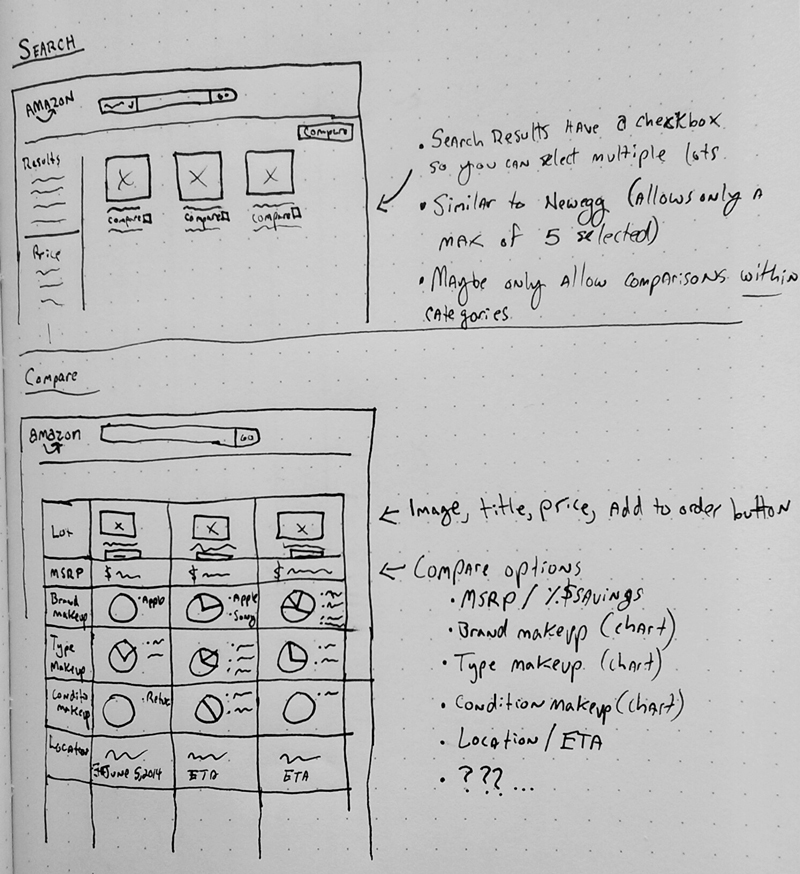 SEARCH
AMAZON
GO
Compare
Results
Compare
Compare
Compare
Price
• Search Results Have a checkbox
so you can select multiple lots.
• Similar to Newegg (Allows only a
max of 5 selected)
• Maybe only allow comparisons within
categories.
Compare
amazon
GO
Lot
MSRP
$
$
$
Brand
makeup
• Apple
• Apple
• Sony
Type
Makeup
Condito
makeup
Location
June 5, 2014
ETA
ETA
Image, title, price, Add to order button
Compare options
• MSRP / %$SAvings
• Brand makeup (chart)
• Type makeup. (chart)
• Condition makeup (chart)
• Location / ETA
• ??? ...